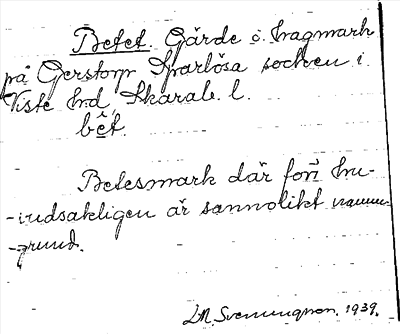 Betet. Gärde o. hagmark
på Gerstorp Sparlösa socken i
Viste hd Skarab. l.
bêt.
Betesmark där förr hu-
-vudsakligen är sannolikt namn-
-grund.
1939.